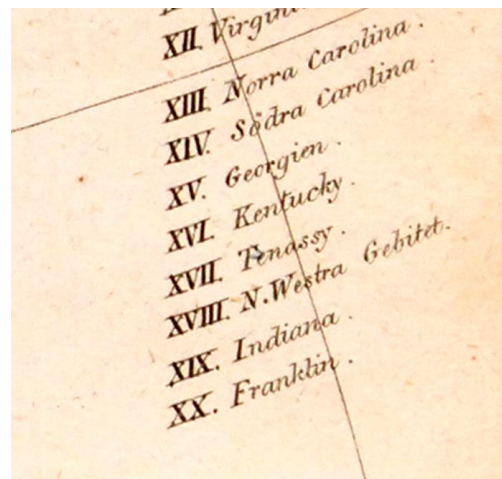 XII. Virgini
XIII. Norra Carolina.
XIV. Södra Carolina.
XV. Georgien.
XVI. Kentucky.
XVII. Tenassy.
XVIII. N. Westra Gebitet.
XIX. Indiana.
XX. Franklin.